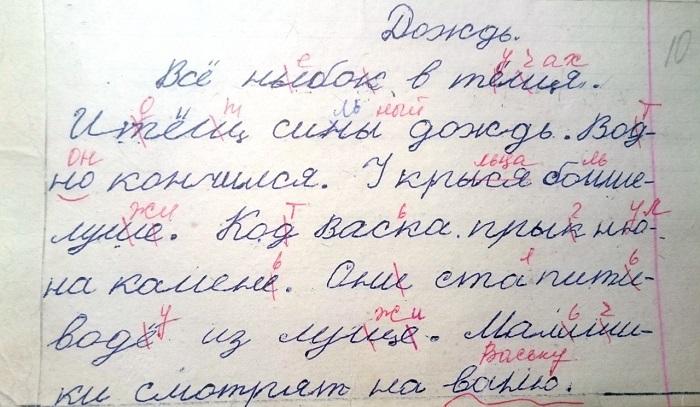 Дождь.
Всё ныбок в тёмця.
Итёшц сины дождь. Вод-
но кончился. У крыся болше-
луше. Код Васка прык ню-
на камени. Они ста пити-
водё из луще. Малиши-
ки смотрят на ваню.
10
е у ч ах
о т ль ный т
он льца ль
жи т ь г ул
ь л ь
у жи ь ч
Ваську